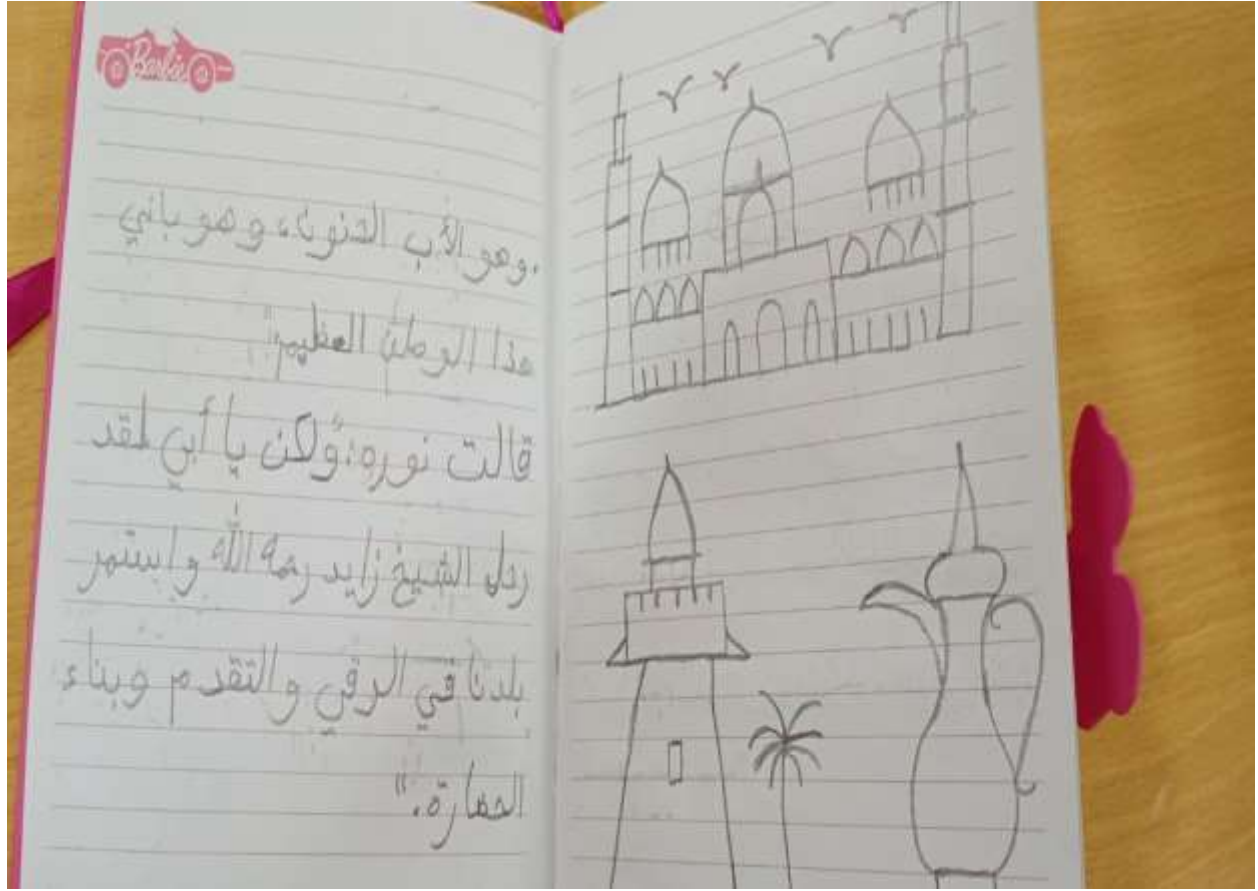 Barbie
.وهو الأب الحنون، وهو باني
هذا الوطن العظيم"
قالت نوره:"ولكن يا أبي لقد
رحل الشيخ زايد رحمه الله واستمر
بلدنا في الرقي والتقدم وبناء
الحضارة."